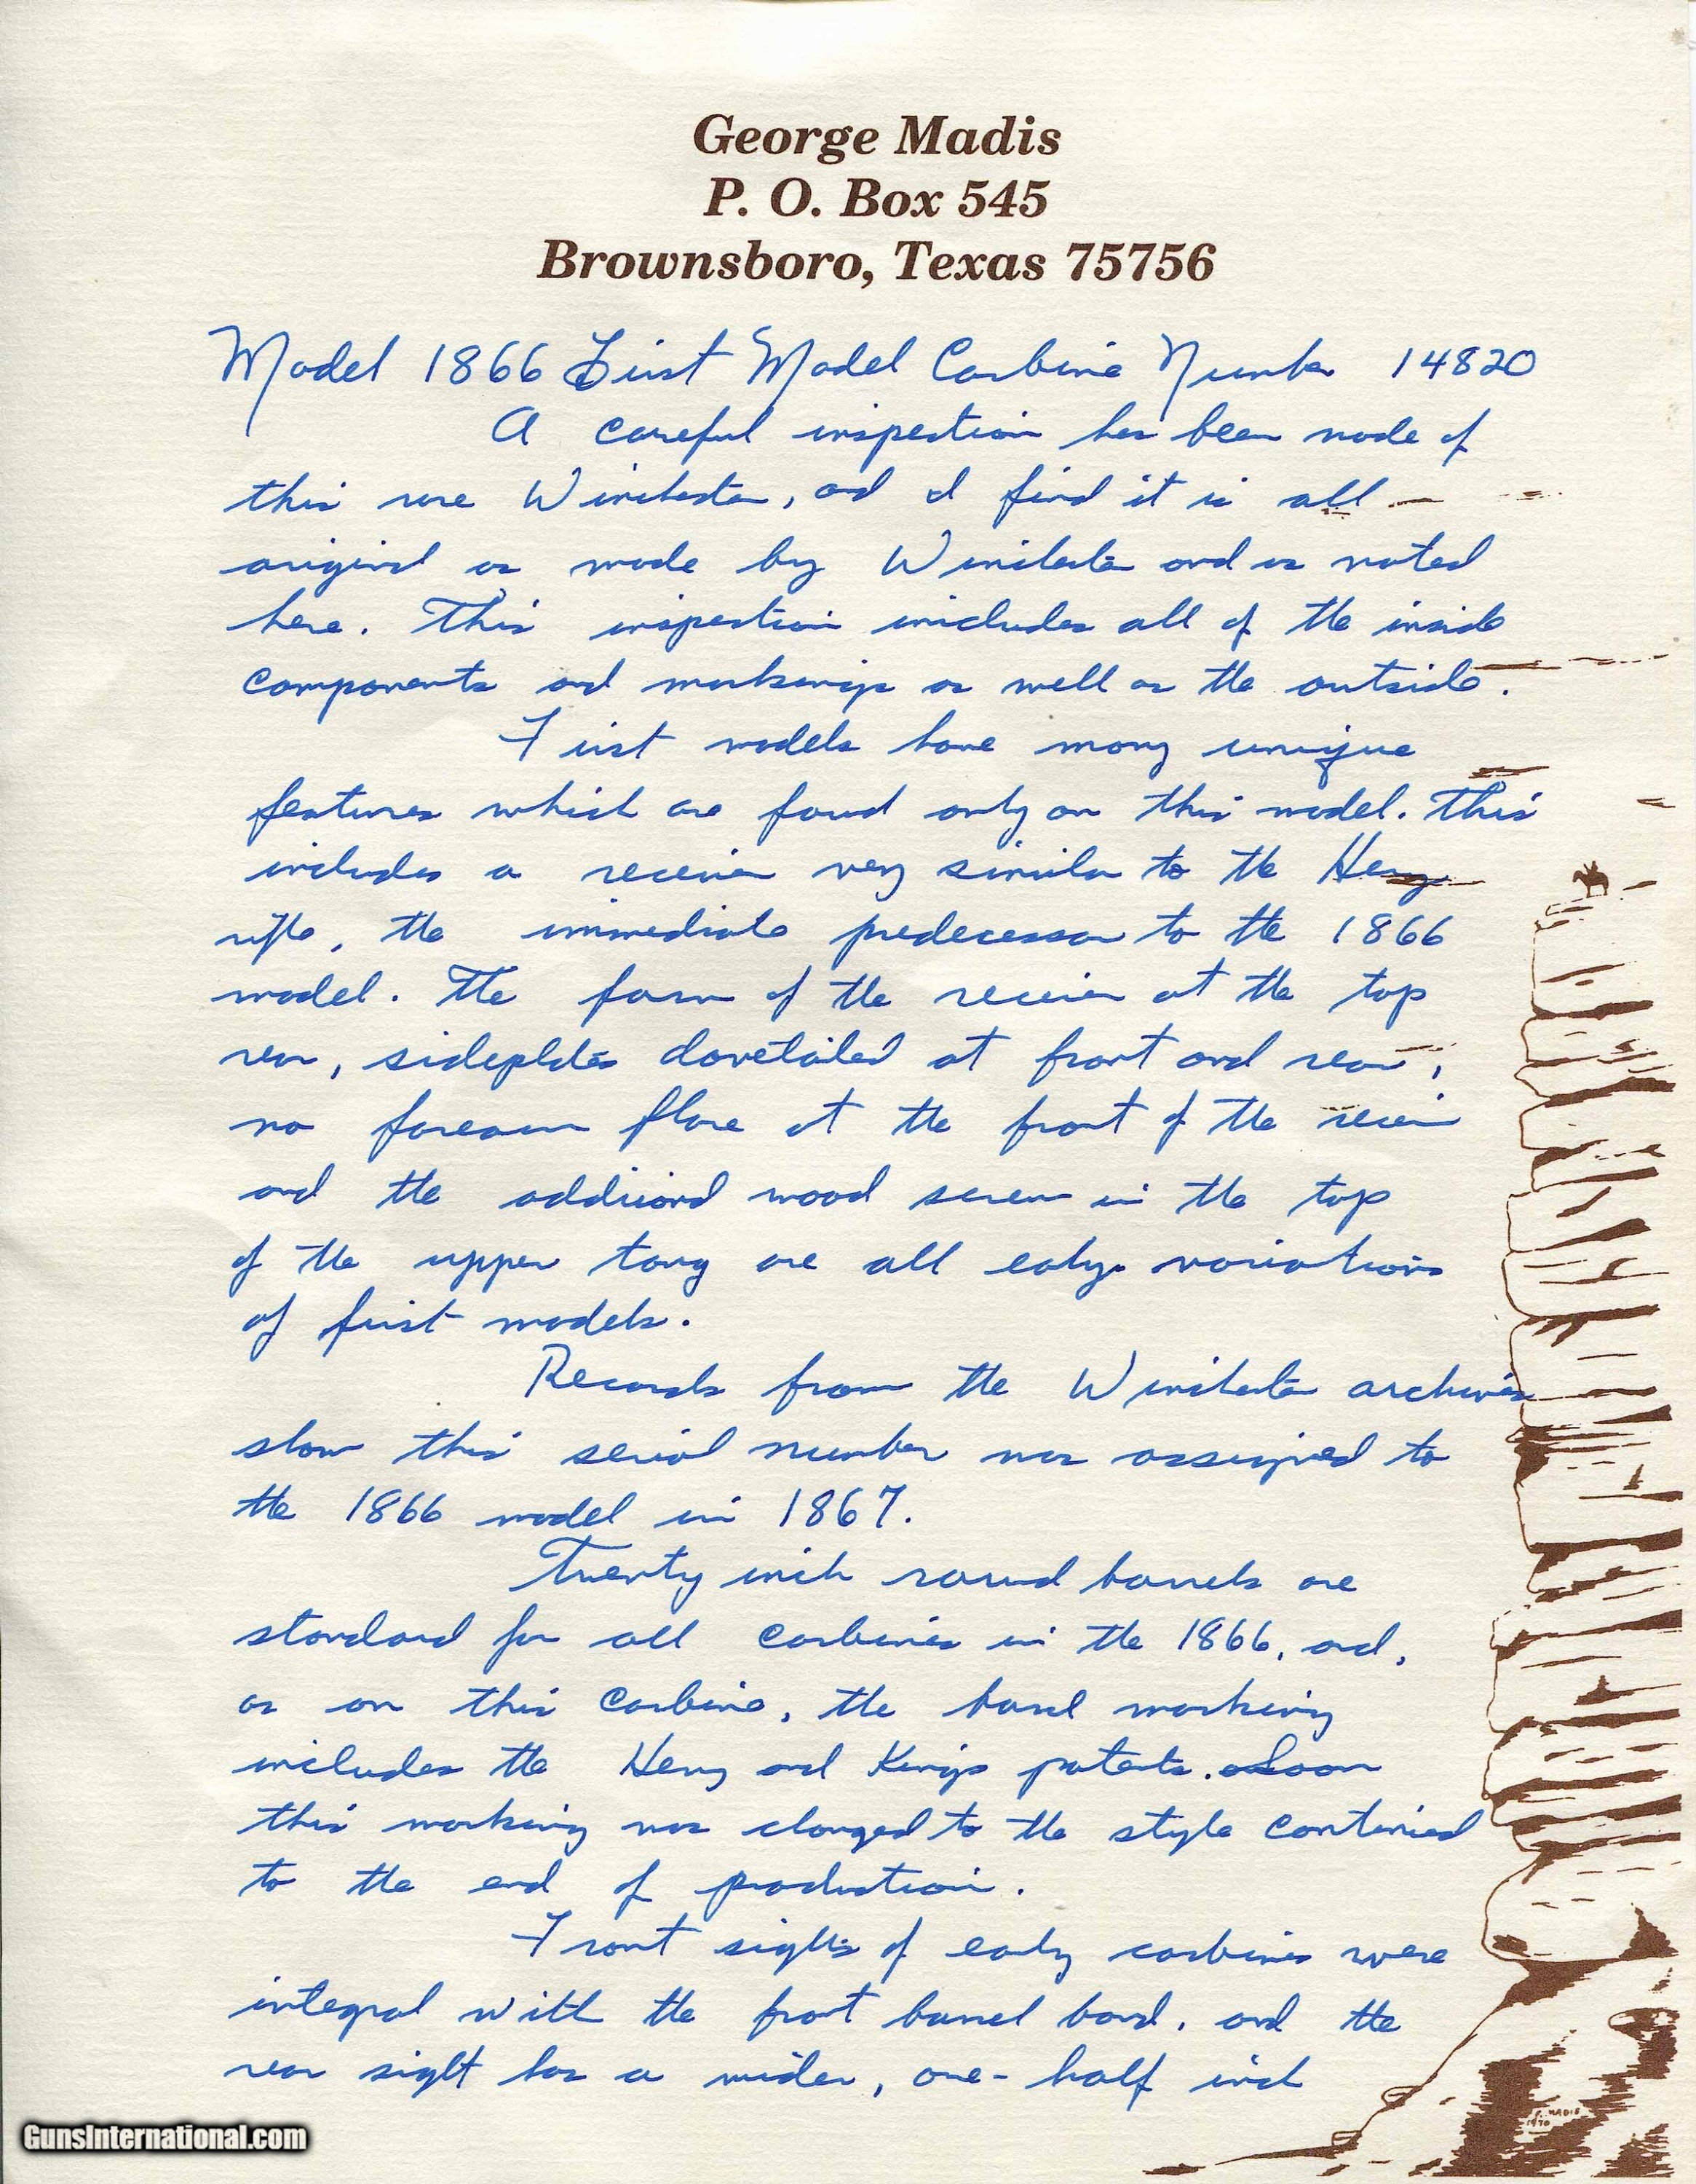 George Madis
P. O. Box 545
Brownsboro, Texas 75756
Model 1866 First Model Carbine Number 14820
A careful inspection has been made of
this rare Winchester, and I find it is all
original as made by Winchester and as noted
here. This inspection includes all of the inside
components and markings as well as the outside.
First models have many unique
features which are found only on this model. This
includes a receiver very similar to the Henry
rifle, the immediate predecessor to the 1866
model. The form of the receiver at the top
rear, sideplates dovetailed at front and rear,
no forearm flare at the front of the receiver
and the additional wood screw in the top
of the upper tang are all early variations
of first models.
Records from the Winchester archives
show this serial number was assigned to
the 1866 model in 1867.
Twenty inch round barrels are
standard for all carbines in the 1866, and,
as on this carbine, the barrel marking
includes the Henry and Kings patents. Soon
this marking was changed to the style continued
to the end of production.
Front sights of early carbines were
integral with the front barrel band, and the
rear sight has a wider, one-half inch
G. MADIS
1970
GunsInternational.com